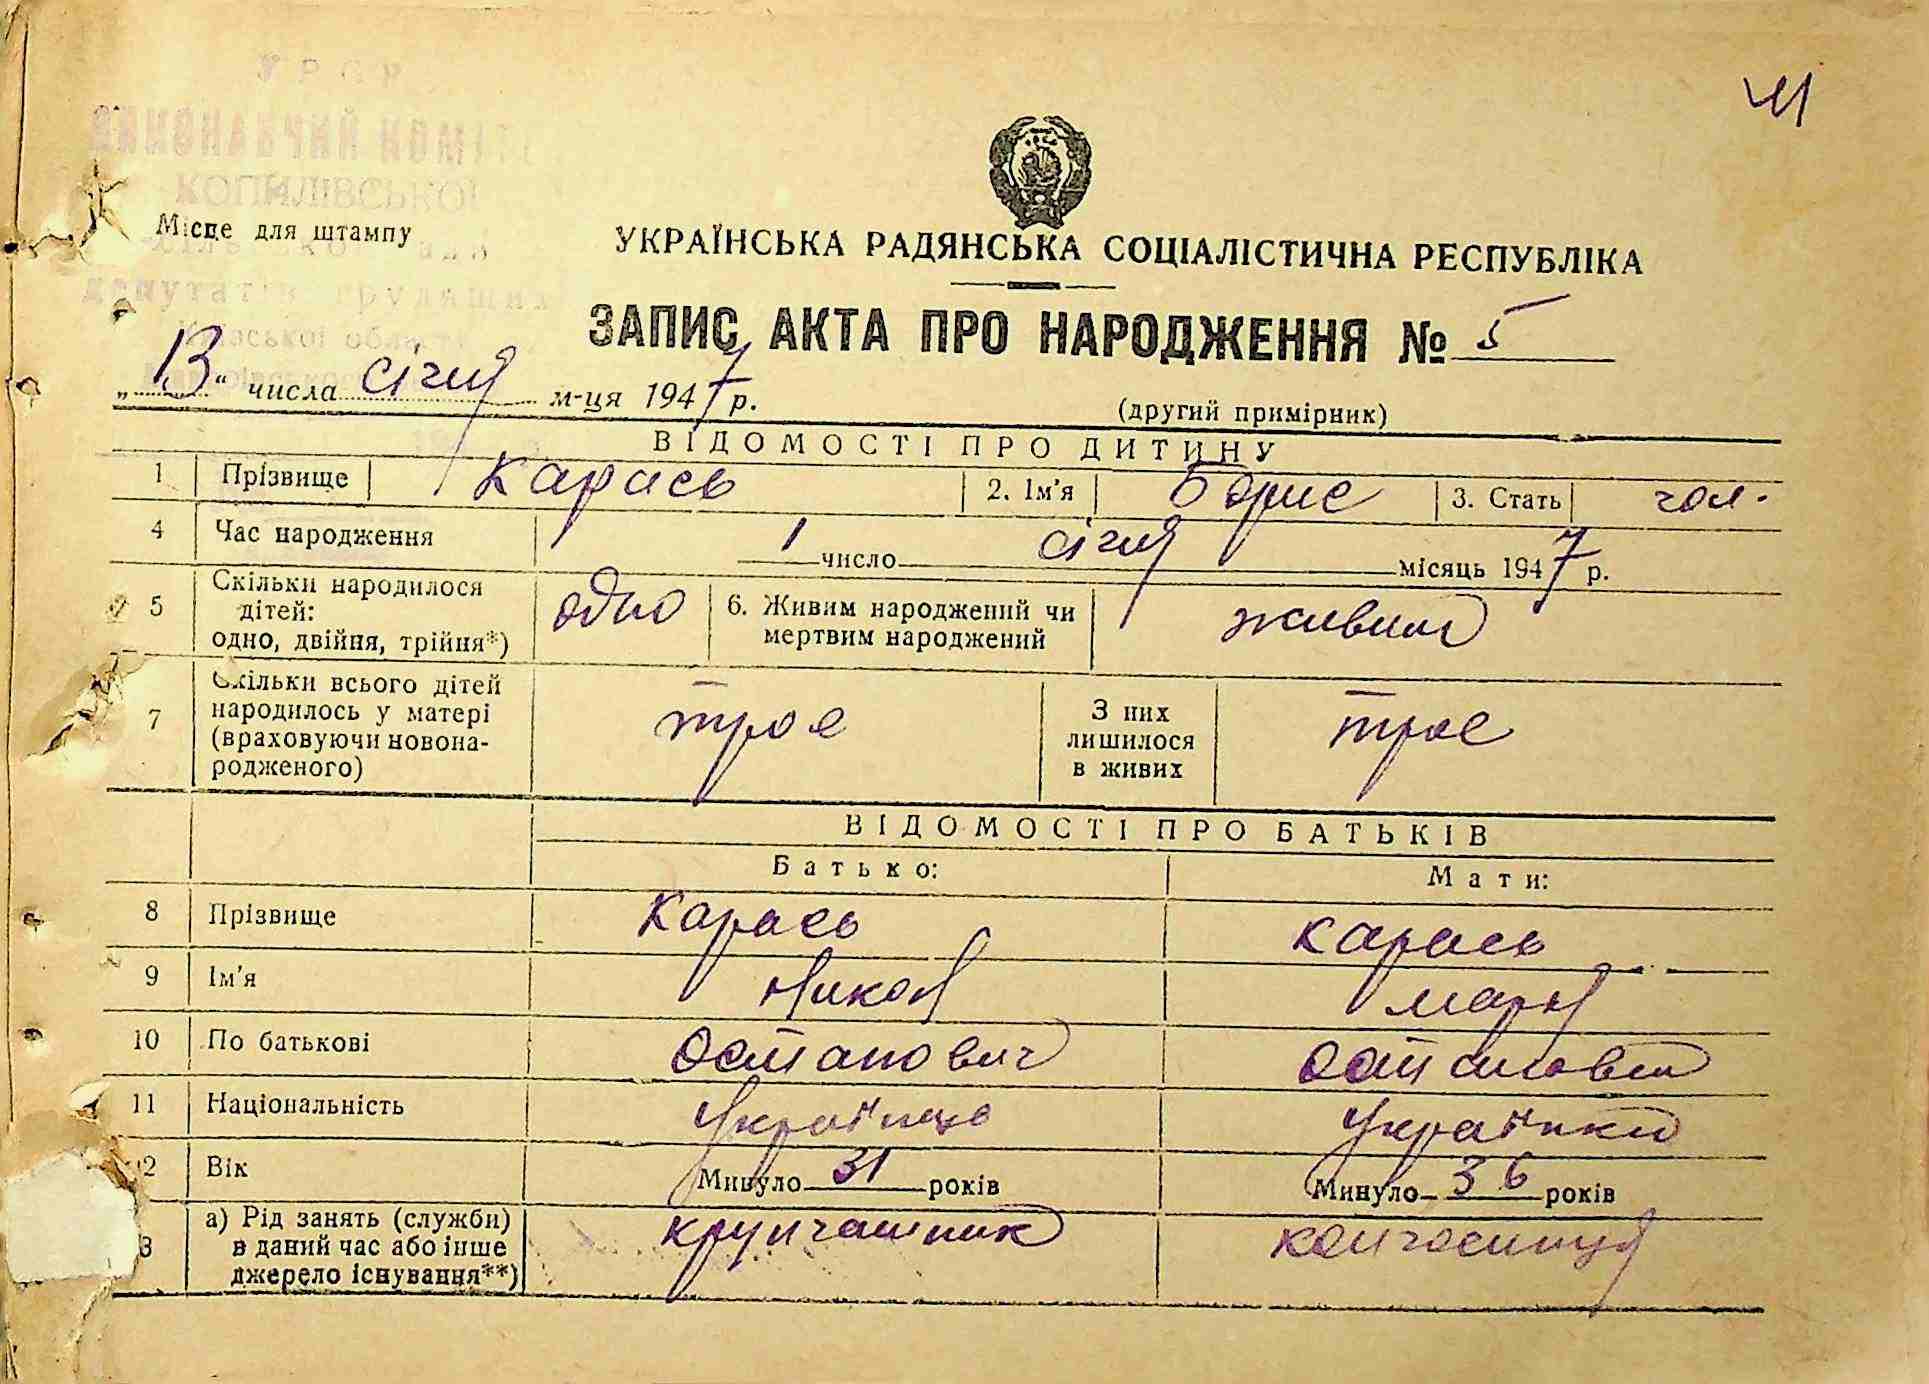 УРСР
ВИКОНАВЧИЙ КОМІТЕТ
КОПИЛІВСЬКОЇ
депутатів трудящих
Київської області
41
Місце для штампу
УКРАЇНСЬКА РАДЯНСЬКА СОЦІАЛІСТИЧНА РЕСПУБЛІКА
ЗАПИС АКТА ПРО НАРОДЖЕННЯ № 5
„13“ числа січня м-ця 1947 р.
(другий примірник)
ВІДОМОСТІ ПРО ДИТИНУ
1 Прізвище Карась 2. Ім'я Борис 3. Стать чол.
4 Час народження 1 число січня місяць 1947 р.
5 Скільки народилося дітей: одно, двійня, трійня*) одно 6. Живим народжений чи мертвим народжений живим
7 Скільки всього дітей народилось у матері (враховуючи новона-родженого) троє З них лишилося в живих троє
ВІДОМОСТІ ПРО БАТЬКІВ
Батько: Мати:
8 Прізвище Карась Карась
9 Ім'я Никон Марія
10 По батькові Остапович Остаповна
11 Національність Українець Українка
12 Вік Минуло 31 років Минуло 36 років
13 а) Рід занять (служби) в даний час або інше джерело існування**)